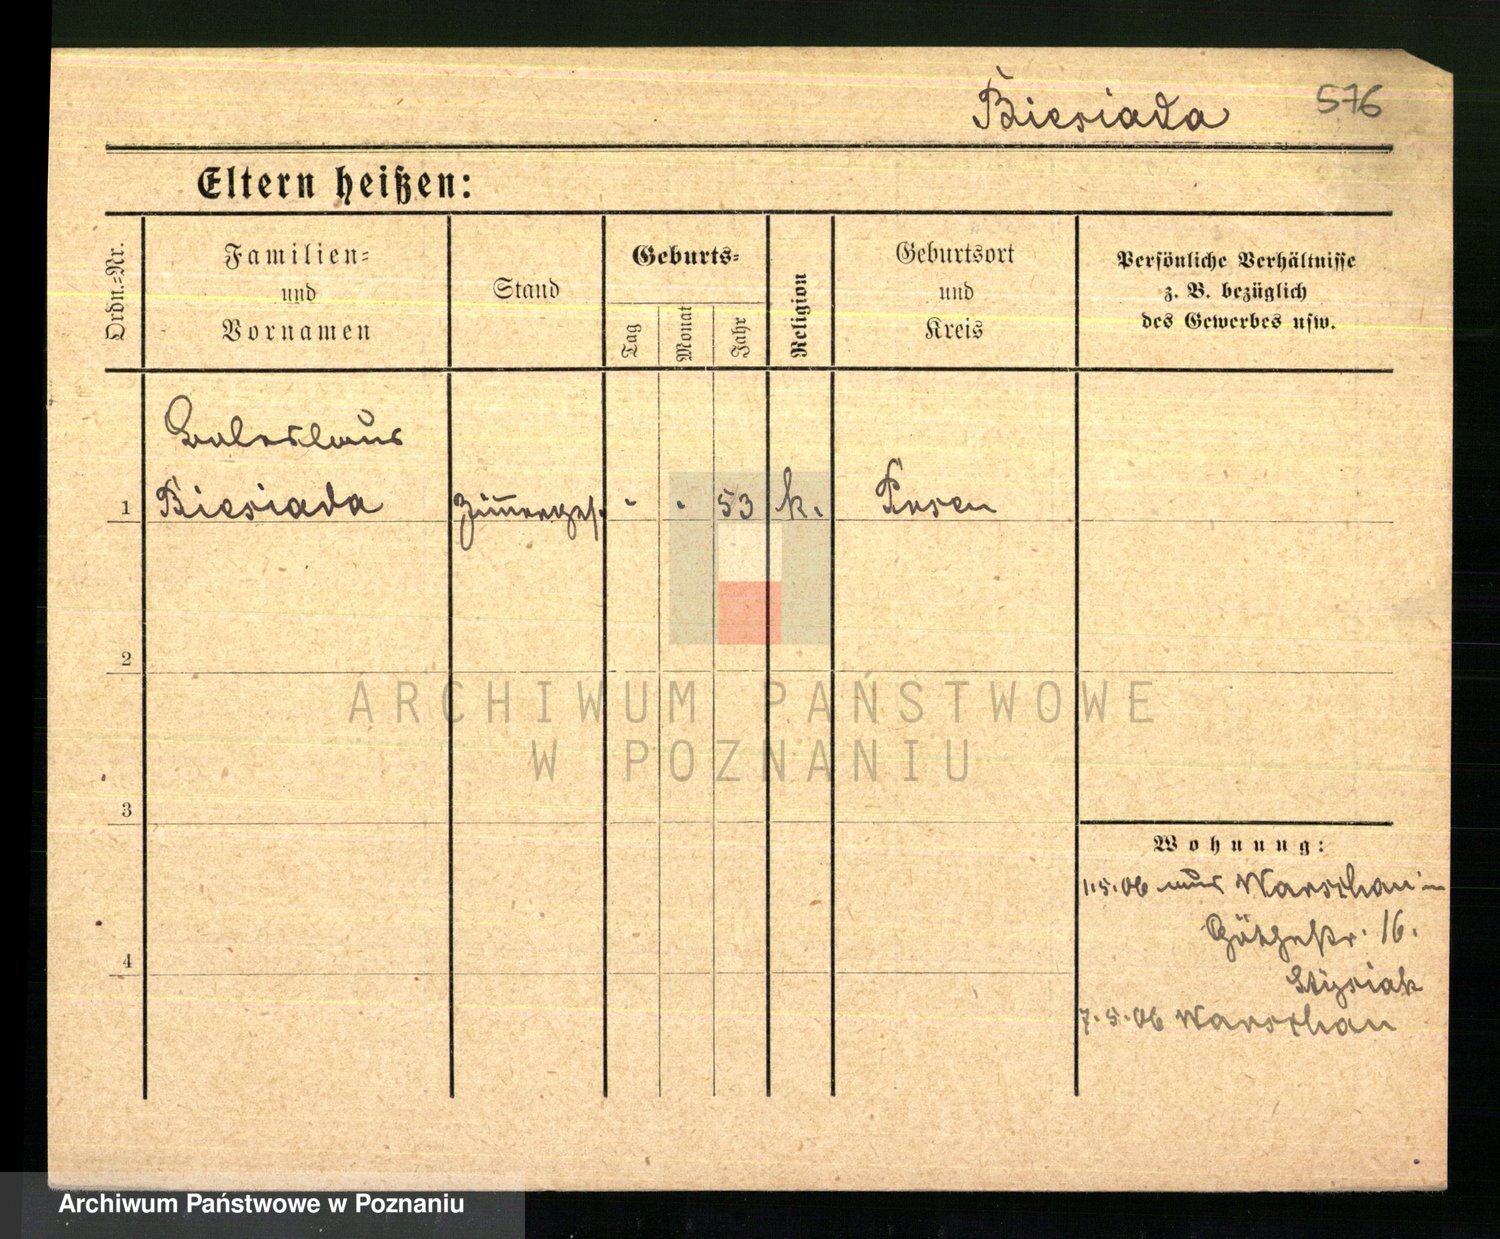 Biesiada 576
Eltern heißen:
Ordn.=Nr.
Familien=
und
Vornamen
Stand
Geburts=
Tag
Monat
Jahr
Religion
Geburtsort
und
Kreis
Persönliche Verhältnisse
z. B. bezüglich
des Gewerbes usw.
Boleslaus
1 Biesiada Zim̅erges. - - 53 k. Posen
2
3
4
Wohnung:
1.5.06 aus Warschau in
Göthestr. 16.
7.5.06 Warschau
ARCHIWUM PAŃSTWOWE
W POZNANIU
Archiwum Państwowe w Poznaniu